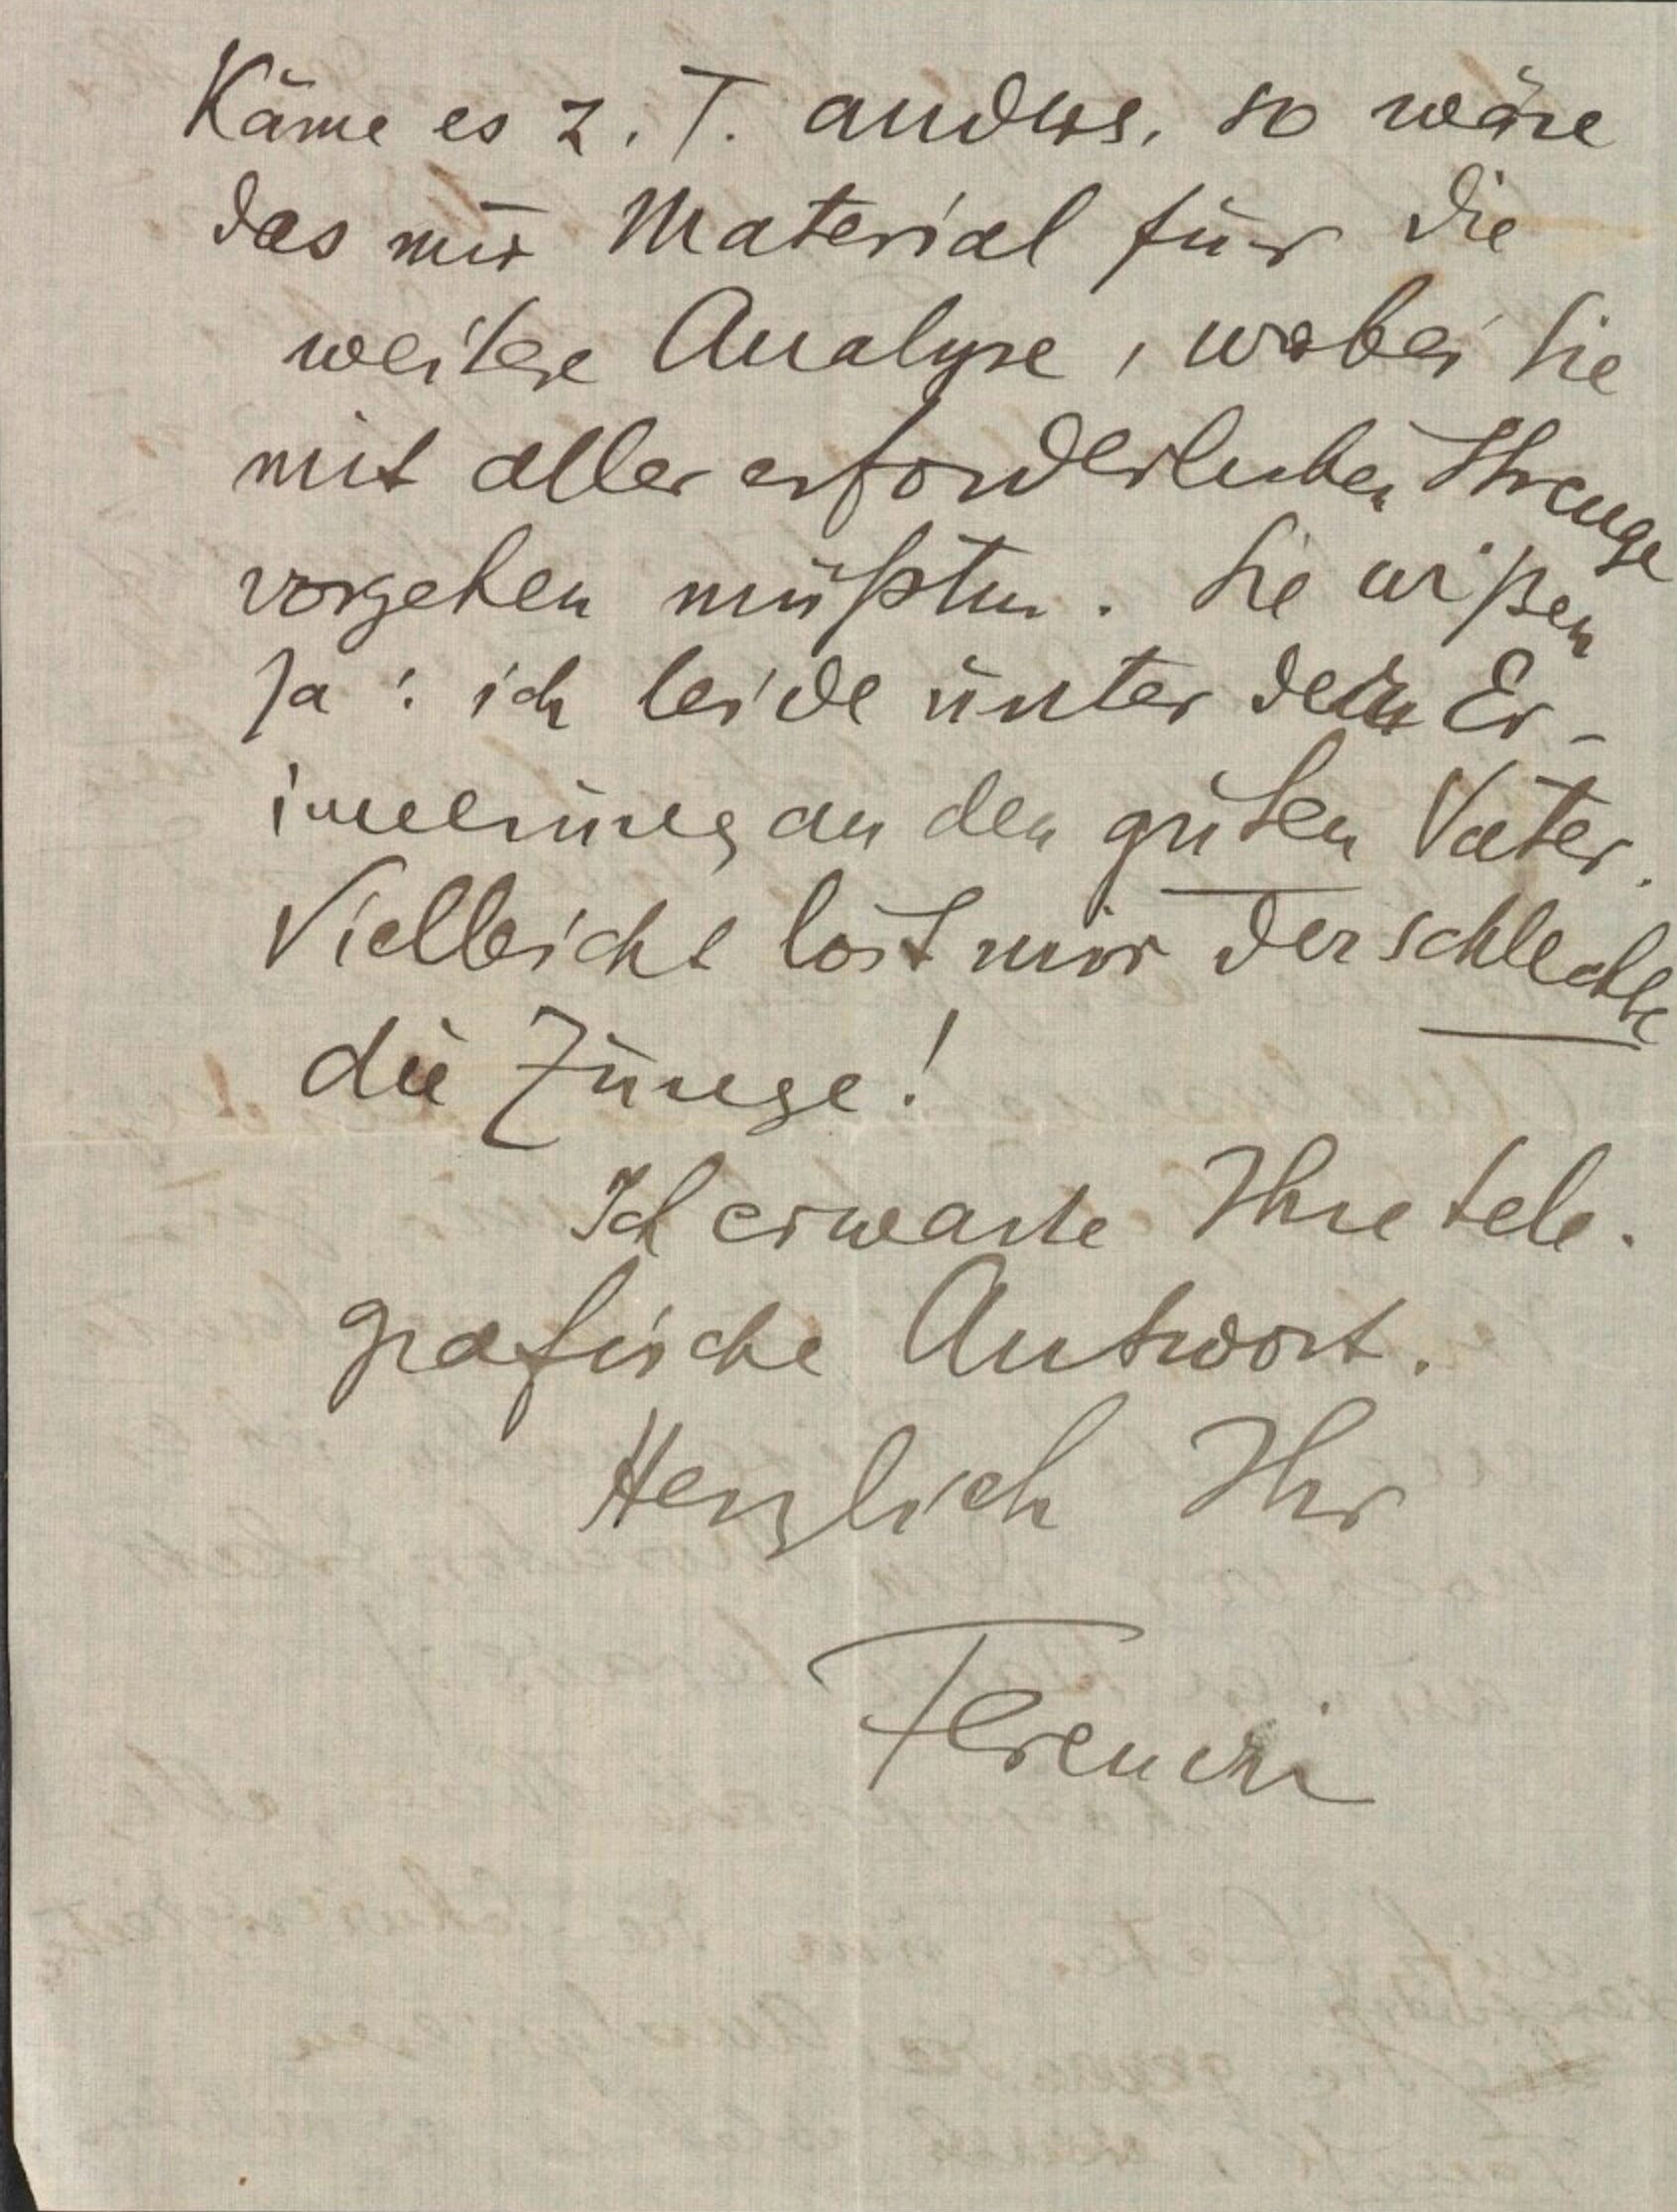 Käme es z. T. anders, so wäre
das nur Material für die
weitere Analyse, wobei Sie
mit aller erforderlichen Strenge
vorgehen müßten. Sie wißen
ja: ich leide unter dem Er-
innerung an den guten Vater.
Vielleicht löst mir der schlechte
die Zunge!
Ich erwarte Ihre tele-
grafische Antwort.
Herzlich Ihr
Ferenczi